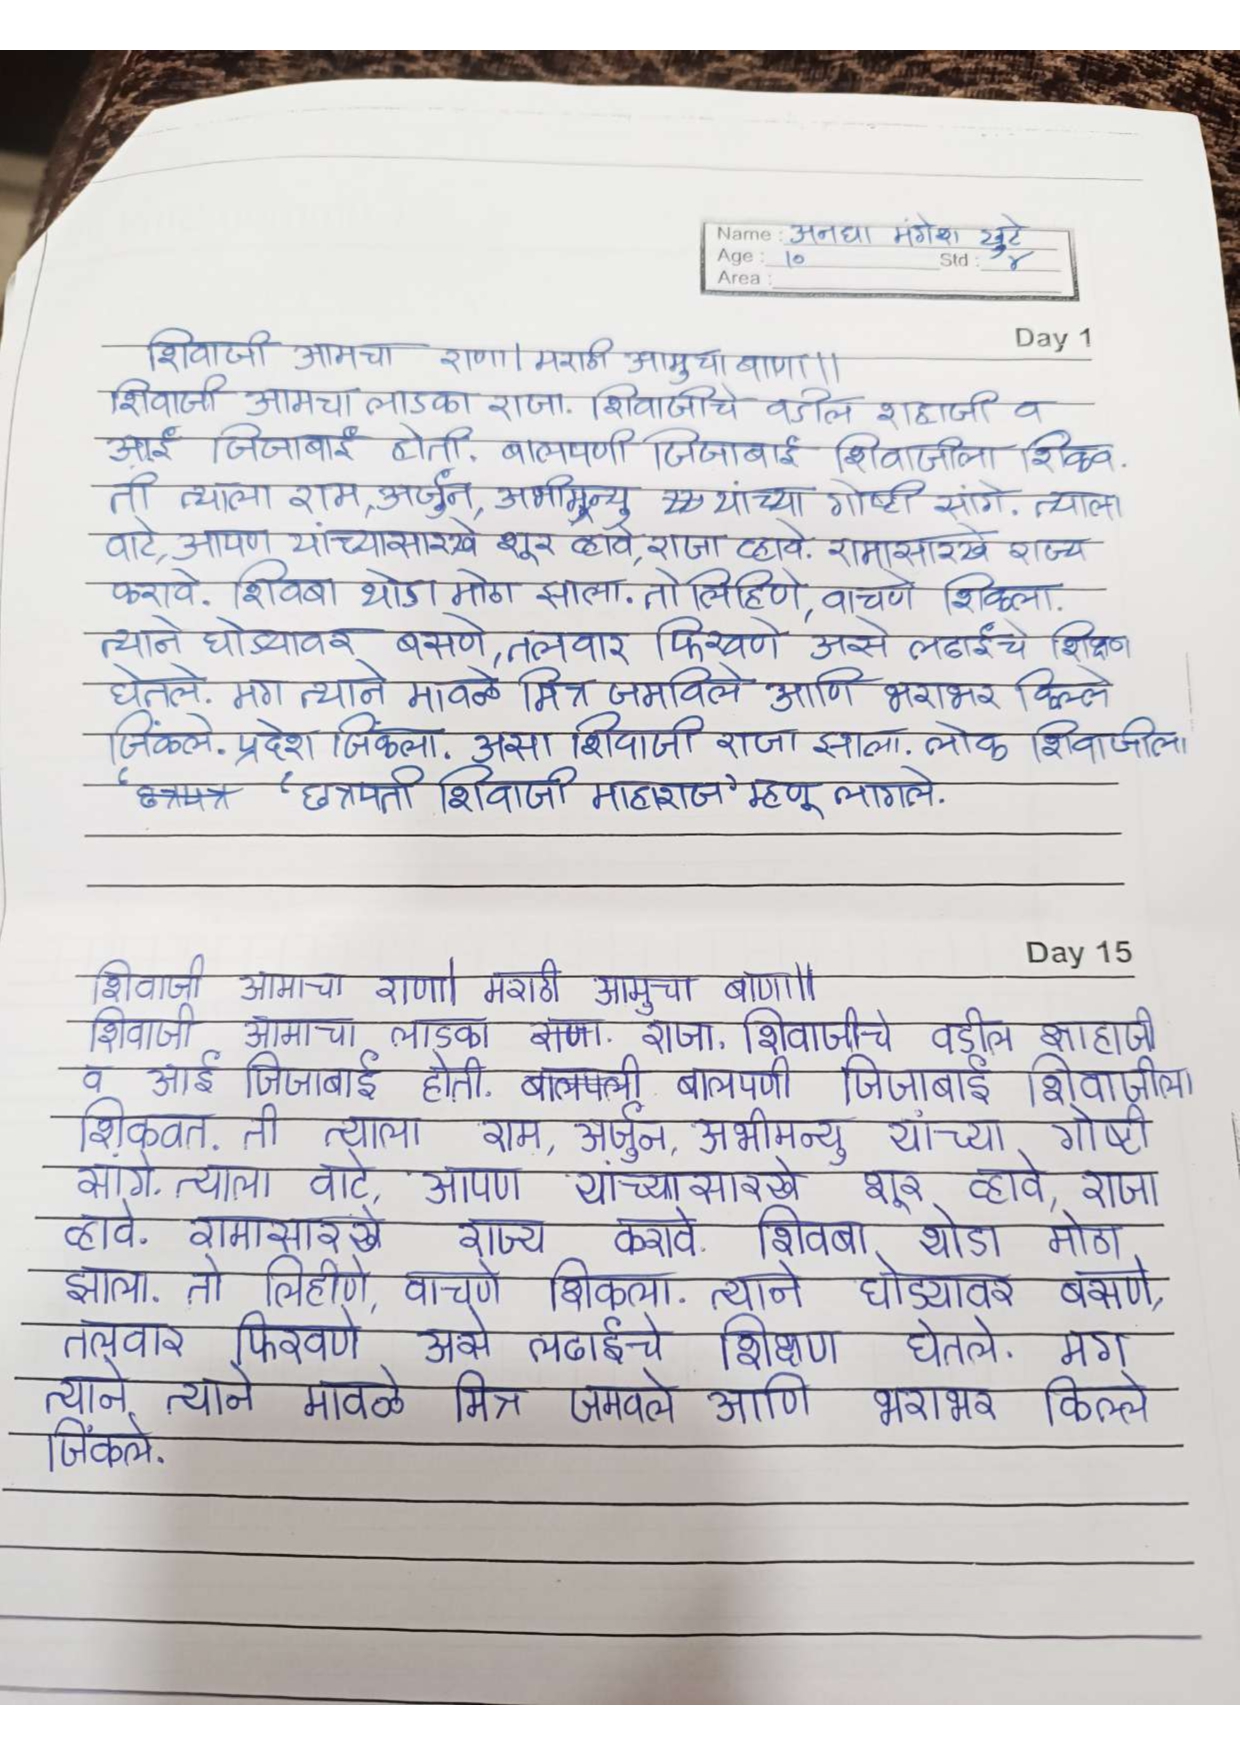 Name : अनघा मंगेश खुटे
Age : १० Std : ४
Area :
Day 1
शिवाजी आमचा राणा। मराठी आमुचा बाणा।।
शिवाजी आमचा लाडका राजा. शिवाजीचे वडील शहाजी व
आई जिजाबाई होती. बालपणी जिजाबाई शिवाजीला शिकव.
ती त्याला राम, अर्जुन, अभीमुन्यु यांच्या गोष्टी सांगे. त्याला
वाटे, आपण यांच्यासारखे शूर व्हावे, राजा व्हावे. रामासारखे राज्य
करावे. शिवबा थोडा मोठा झाला. तो लिहिणे, वाचणे शिकला.
त्याने घोड्यावर बसणे, तलवार फिरवणे असे लढाईचे शिक्षण
घेतले. मग त्याने मावळे मित्र जमविले आणि भराभर किल्ले
जिंकले. प्रदेश जिंकला. असा शिवाजी राजा झाला. लोक शिवाजीला
‘छत्रपत्र ‘छत्रपती शिवाजी माहाराज’ म्हणू लागले.
Day 15
शिवाजी आमाचा राणा। मराठी आमुचा बाणा।।
शिवाजी आमाचा लाडका राजा. शिवाजीचे वडील शाहाजी
व आई जिजाबाई होती. बालपली बालपणी जिजाबाई शिवाजीला
शिकवत. ती त्याला राम, अर्जुन, अभीमन्यु यांच्या गोष्टी
सांगे. त्याला वाटे, आपण यांच्यासारखे शूर व्हावे, राजा
व्हावे. रामासारखे राज्य करावे. शिवबा थोडा मोठा
झाला. तो लिहीणे, वाचणे शिकला. त्याने घोड्यावर बसणे,
तलवार फिरवणे असे लढाईचे शिक्षण घेतले. मग
त्याने त्याने मावळे मित्र जमवले आणि भराभर किल्ले
जिंकले.